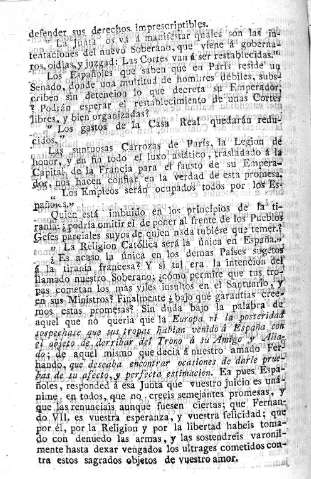 defender sus derechos imprescriptibles.
"La Junta os vá á manifestar quales son las in-
tentaciones del nuevo Soberano, que viene á goberna-
ros, oidlas, y juzgad: Las Cortes van á ser restablecidas."
Los Españoles que saben que en Paris reside un
Senado, donde una multitud de hombres débiles, subs-
criben sin detencion lo que decreta su Emperador,
? Podrán esperar el restablecimiento de unas Cortes
libres, y bien organizadas?
"Los gastos de la Casa Real quedarán redu-
cidos."
Las suntuosas Carrozas de París, la Legion de
honor, y en fin todo el luxo asiático, trasladado á la
Capital de la Francia para el fausto de su Empera-
dor, nos hacen confiar en la verdad de esta promesa.
"Los Empleos serán ocupados todos por los Es-
pañoles."
Quien está imbuido en los principios de la ti-
rania: ¿podria omitir el poner al frente de los Pueblos
Gefes parciales suyos de quien nada tubiese que temer?
"La Religion Católica será la única en España."
¿Es acaso la única en los demas Paises sugetos
á la tirania francesa? Y si tal era la intencion del
llamado nuestro Soberano; ¿cómo permite que sus tro-
pas cometan los más viles insultos en el Santuario, y
en sus Ministros? Finalmente ¿ bajo qué garantías cree-
mos estas promesas? Sin duda bajo la palabra de
aquel que no queria que la Europa ni la posteridad
sospechase que sus tropas habian venido á España con
el objeto de derribar del Trono á su Amigo y Alia-
do; de aquel mismo que decia á nuestro amado Fer-
nando, que deseaba encontrar ocasiones de darle prue-
bas de su afecto, y perfecta estimacion. Ea pues Espa-
ñoles, responded á esa Junta que vuestro juicio es uná-
nime en todos, que no creeis semejantes promesas, y
que las renunciais aunque fuesen ciertas; que Fernan-
do VII. es vuestra esperanza, y vuestra felicidad; que
por él, por la Religion y por la libertad habeis toma-
do con denuedo las armas, y las sostendreis varonil-
mente hasta dexar vengados los ultrages cometidos con-
tra estos sagrados objetos de vuestro amor.